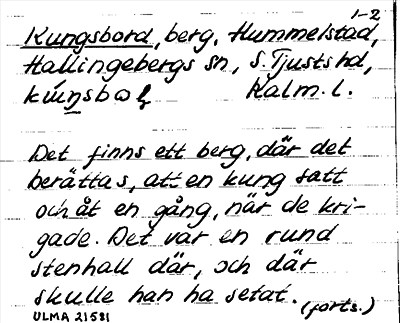 1-2
Kungsbord, berg, Hummelstad,
Hallingebergs sn, S. Tjusts hd,
Kalm. l.
Det finns ett berg, där det
berättas, att en kung satt
och åt en gång, när de kri-
gade. Det var en rund
stenhall där, och där
skulle han ha setat. (forts.)
ULMA 21581